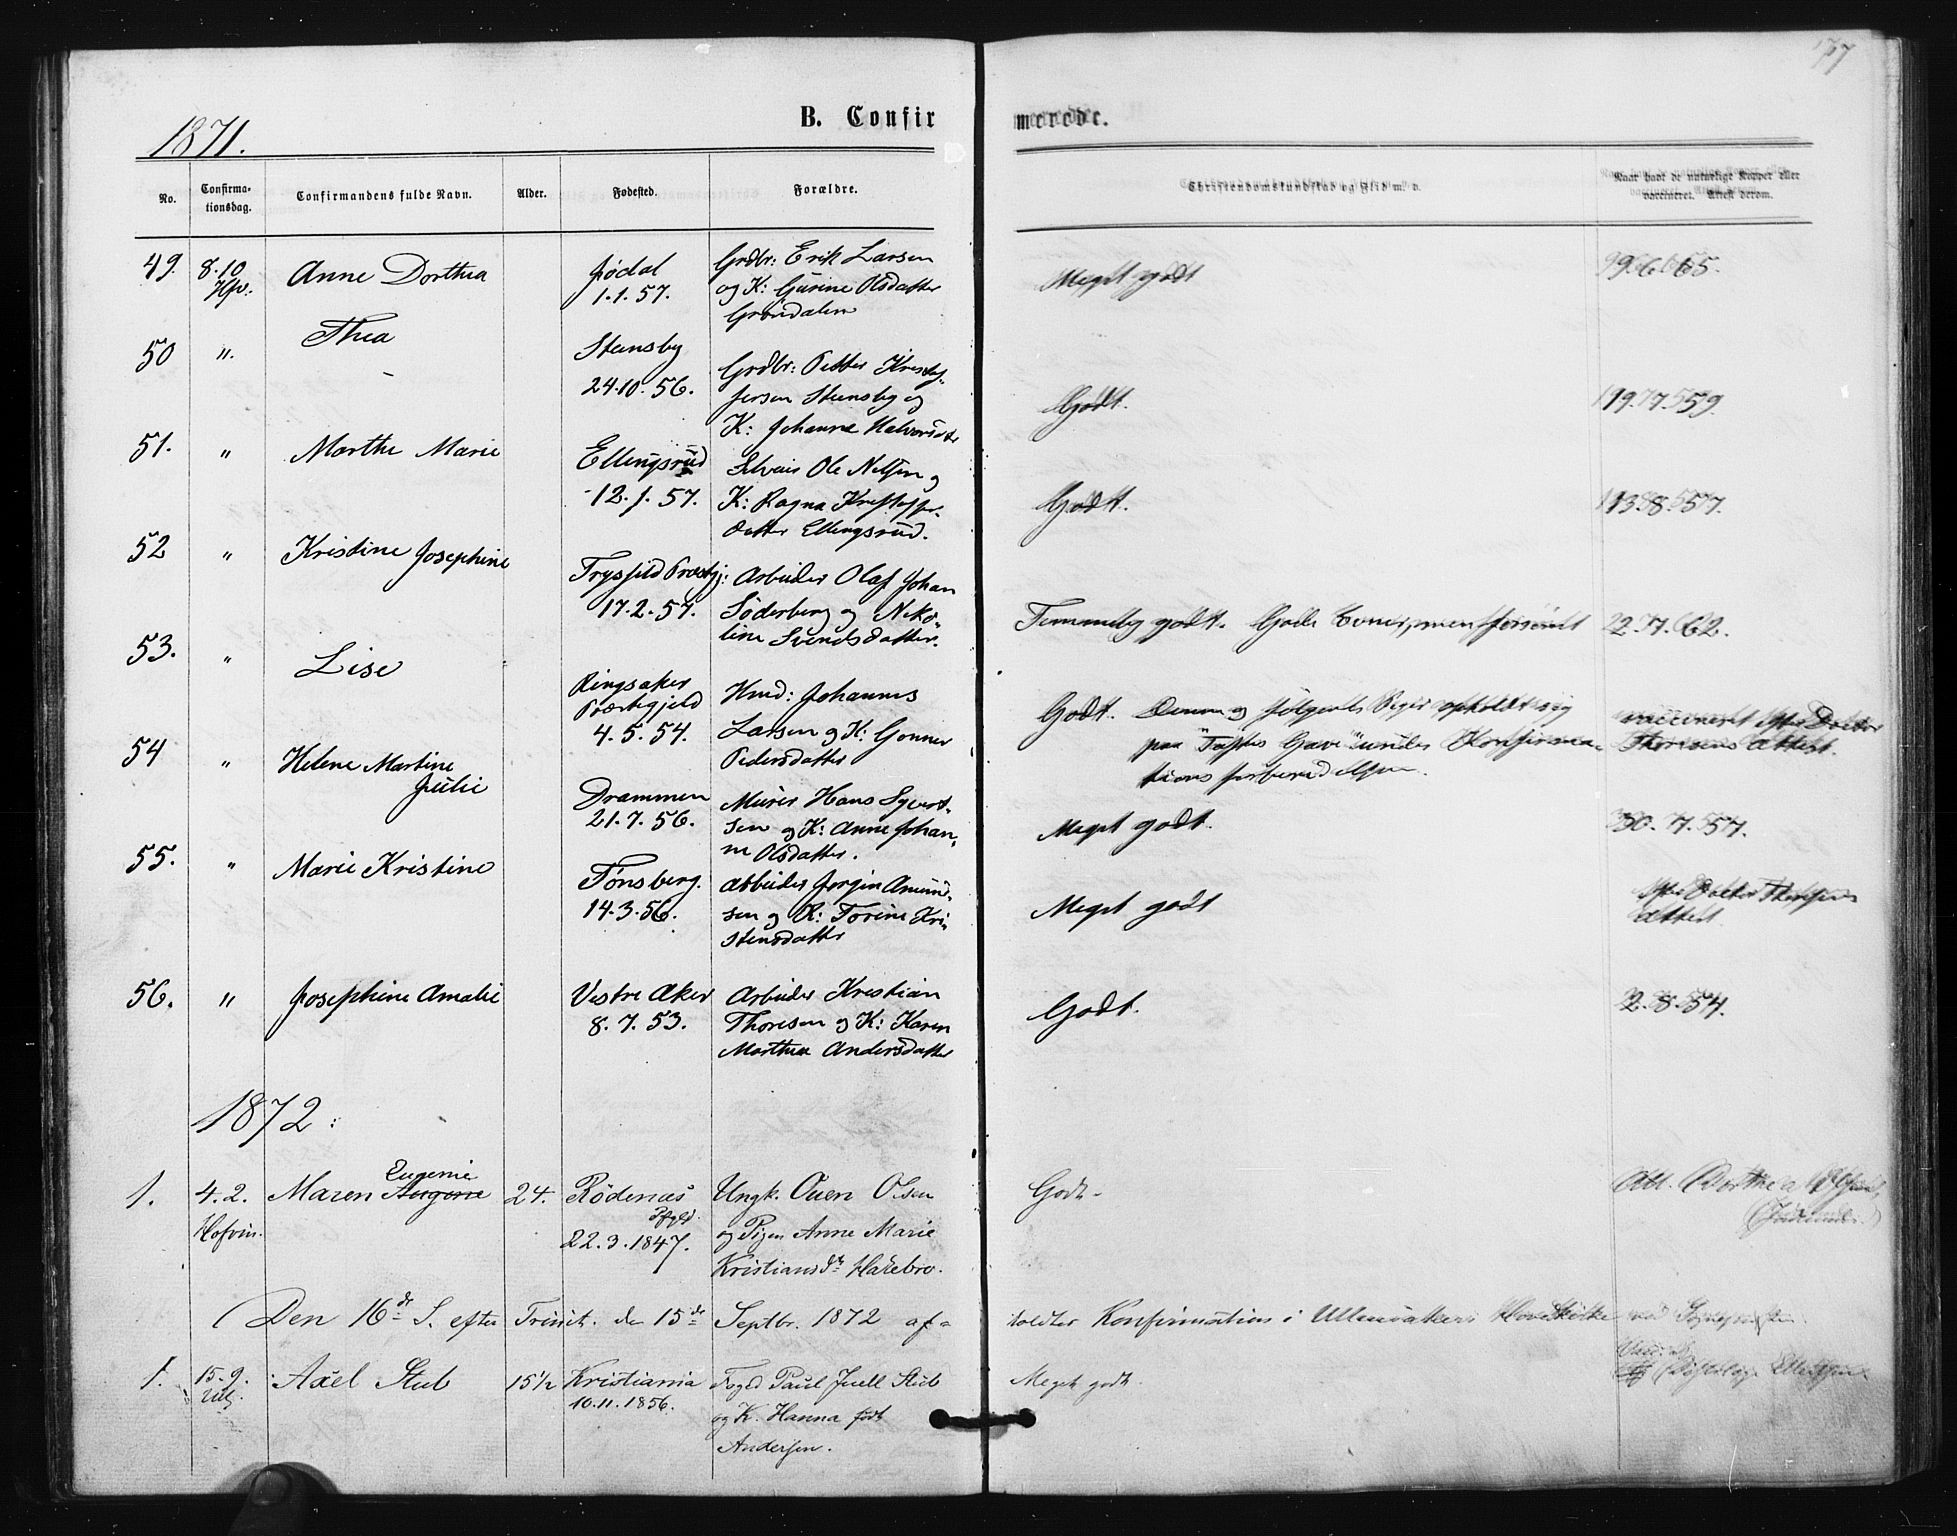 177
1871.
B. Confirmerede.
No.
Confirma-
tionsdag.
Confirmandens fulde Navn.
Alder.
Fødested.
Forældre.
Christendomskundskab og Flid m. v.
Naar havt de naturlige Kopper eller
vaccineret. Attest derom.
49. 8.10 Anne Dorthea
Jødal
1.1.57.
Grdbr: Erik Larsen
og K: Gurine Olsdatter
Grøndalen
Meget godt
9.6.65.
50 " Thea
Steensby
24.10.56.
Grdbr: Petter Kristof-
fersen Steensby og
K: Johanne Halvorsdtr
Godt.
19.7.59.
51. " Marthe Marie
Ellingsrud
12.1.57.
Selveier Ole Nilsen og
K: Ragna Kristoffer-
datter Ellingsrud.
Godt.
13.8.57.
52 " Kristine Josephine
Trysfjeld Præstgj:
17.2.57.
Arbeider Olaf Johan
Söderberg og Niko-
line Svendsdatter.
Temmelig godt. Gode Evner, men forsømt
2.7.62.
53. " Lise
Ringsaker
Præstegjeld
4.5.54.
Hmd: Johannes
Larsen og K: Gonner
Pedersdatter
Godt. Denne og følgende Piger opholdt sig
paa "Toftes Gave" under Konfirma-
tions forberedelsen.
vaccineret efter Doctor
Thoresens Attest.
54 " Helene Martine
Julie
Drammen
21.7.56.
Murer Hans Syvert-
sen og K: Anne Johan-
ne Olsdatter.
Meget godt.
30.7.57.
55. " Marie Kristine
Tønsberg.
14.3.56.
Arbeider Jørgen Amund-
sen og K: Torine Kri-
stensdatter
Meget godt
efter Doctor Thoresens
Attest.
56. " Josephine Amalie
Vestre Aker
8.7.53.
Arbeider Kristian
Thoresen og K: Karen
Marthea Andersdatter
Godt.
2.8.54.
1872:
Eugenie
1. 4.2. Maren 24.
Hofvin.
Rødenæs
Pgjld.
22.3.1847.
Ungk. Ouen Olsen
og Pigen Anne Marie
Kristiansdtr Harebro.
Godt.
Att. Dorthea
Den 16de S. efter Trinit. den 15de Septbr. 1872 af-
holdtes Konfirmation i Ullensakers Hovedkirke ved Sognepresten.
1. 15.9. Axel Stub 15½
Ull.
Kristiania
10.11.1856.
Foged Paul Juell Stub
og K. Hanna født
Andersen.
Meget godt.